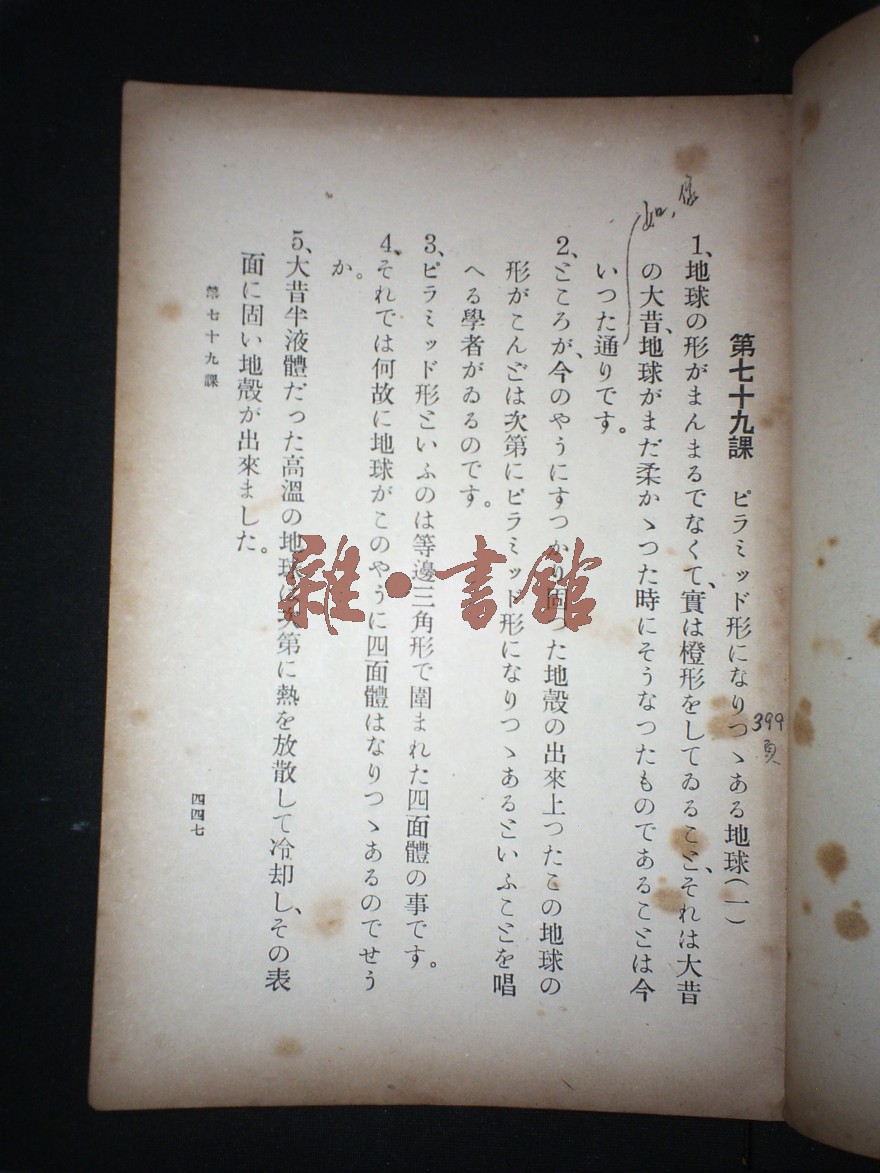 第七十九課 ピラミッド形になりつゝある地球(一)
399
頁
1、地球の形がまんまるでなくて、實は橙形をしてゐること、それは大昔
の大昔、地球がまだ柔かゝつた時にそうなつたものであることは今
いつた通りです。
如
2、ところが、今のやうにすつかり固つた地殼の出來上つたこの地球の
形がこんどは次第にピラミッド形になりつゝあるといふことを唱
へる學者がゐるのです。
3、ピラミッド形といふのは等邊三角形で圍まれた四面體の事です。
4、それでは何故に地球がこのやうに四面體はなりつゝあるのでせう
か。
5、大昔半液體だった高溫の地球は次第に熱を放散して冷却し、その表
面に固い地殼が出來ました。
第七十九課
四四七
雜·書館